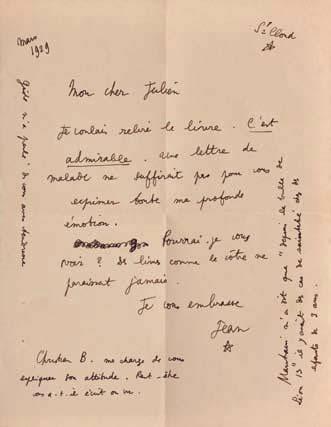 mars
1929
St Cloud
Mon cher Julien
Je voulais relire le livre. C'est
admirable. Une lettre de
malade ne suffirait pas pour vous
exprimer toute ma profonde
émotion.
Pourrai-je vous
voir? Des livres comme le vôtre ne
paraissent jamais.
Je vous embrasse
Jean
Christian B. me charge de vous
expliquer son attitude. Peut-être
vous a-t-il écrit ou vu.
Gide m'a parlé de vous avec tendresse
Maritain m'a dit que "depuis la bulle de
Léon 13" il y avait des cas de sainteté chez des
enfants de 3 ans.